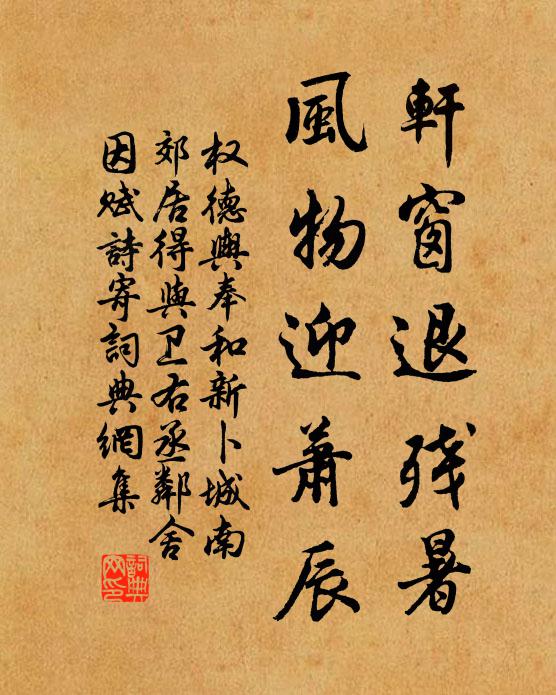 軒窗退残暑
風物迎萧辰
权德與奉和新卜城南
郊居得與卫右丞鄰舍
因赋詩寄詞典網集
詞典
网印